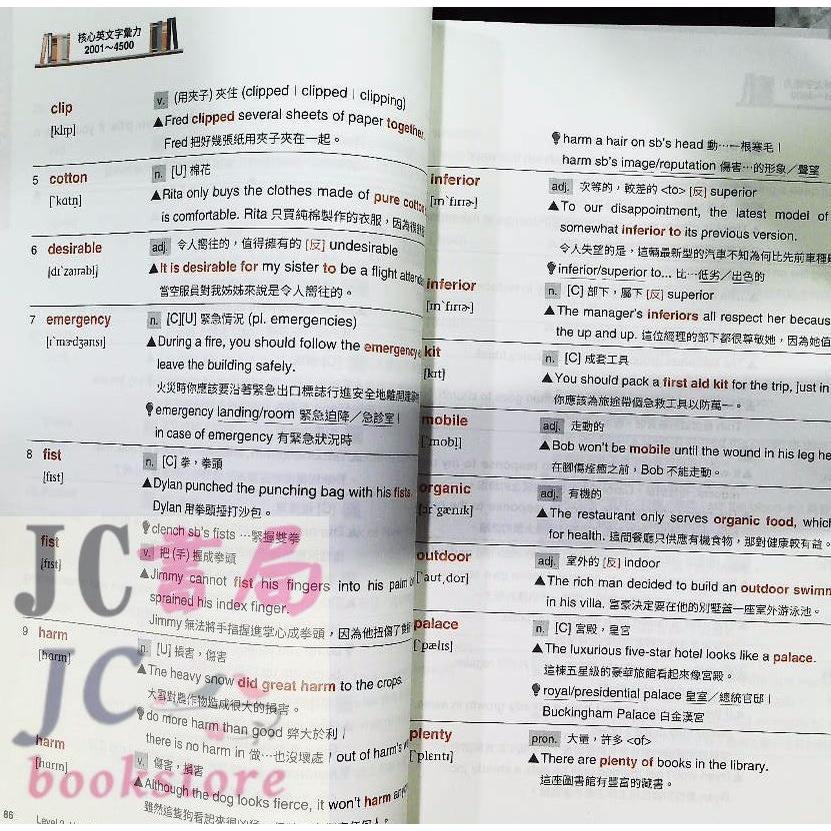 核心英文字彙力
2001～4500
clip
[klɪp]
v. (用夾子) 夾住 (clipped | clipped | clipping)
▲Fred clipped several sheets of paper together.
Fred 把好幾張紙用夾子夾在一起。
5 cotton
[ˋkɑtn̩]
n. [U] 棉花
▲Rita only buys the clothes made of pure cotton
is comfortable. Rita 只買純棉製作的衣服，因為很舒
6 desirable
[dɪˋzaɪrəbl̩]
adj. 令人嚮往的，值得擁有的 [反] undesirable
▲It is desirable for my sister to be a flight attenda
當空服員對我姊姊來說是令人嚮往的。
7 emergency
[ɪˋmɝdʒənsɪ]
n. [C][U] 緊急情況 (pl. emergencies)
▲During a fire, you should follow the emergency
leave the building safely.
火災時你應該要沿著緊急出口標誌行進安全地離開建築物
emergency landing/room 緊急迫降／急診室 |
in case of emergency 有緊急狀況時
8 fist
[fɪst]
n. [C] 拳，拳頭
▲Dylan punched the punching bag with his fists.
Dylan 用拳頭捶打沙包。
clench sb's fists …緊握雙拳
fist
[fɪst]
v. 把 (手) 握成拳頭
▲Jimmy cannot fist his fingers into his palm
sprained his index finger.
Jimmy 無法將手指握進掌心成拳頭，因為他扭傷了食指
9 harm
[hɑrm]
n. [U] 損害，傷害
▲The heavy snow did great harm to the crops.
大雪對農作物造成很大的損害。
do more harm than good 弊大於利 |
there is no harm in 做…也沒壞處 | out of harm's
harm
[hɑrm]
v. 傷害，損害
▲Although the dog looks fierce, it won't harm
雖然這隻狗看起來很凶
86
Level 2
harm a hair on sb's head 動…一根寒毛 |
harm sb's image/roputation 傷害…的形象／聲望
inferior
[ɪnˋfɪrɪɚ]
adj. 次等的，較差的 <to> [反] superior
▲To our disappointment, the latest model of
somewhat inferior to its previous version.
令人失望的是，這輛最新型的汽車不知為何比先前車種
inferior/superior to... 比…低劣／出色的
inferior
[ɪnˋfɪrɪɚ]
n. [C] 部下，屬下 [反] superior
▲The manager's inferiors all respect her becaus
the up and up. 這位經理的部下都很尊敬她，因為她值
kit
[kɪt]
n. [C] 成套工具
▲You should pack a first aid kit for the trip, just in
你應該為旅途帶個急救工具以防萬一。
mobile
[ˋmobl̩]
adj. 走動的
▲Bob won't be mobile until the wound in his leg he
在腳傷痊癒之前，Bob 不能走動。
organic
[ɔrˋgænɪk]
adj. 有機的
▲The restaurant only serves organic food, which
for health. 這間餐廳只供應有機食物，那對健康較有益。
outdoor
[ˋaʊtˏdor]
adj. 室外的 [反] indoor
▲The rich man decided to build an outdoor swimm
in his villa. 富豪決定要在他的別墅蓋一座室外游泳池。
palace
[ˋpælɪs]
n. [C] 宮殿，皇宮
▲The luxurious five-star hotel looks like a palace.
這棟五星級的豪華旅館看起來像宮殿。
royal/presidential palace 皇室／總統官邸 |
Buckingham Palace 白金漢宮
plenty
[ˋplɛntɪ]
pron. 大量，許多 <of>
▲There are plenty of books in the library.
這座圖書館有豐富的藏書。
JC書局
JC
bookstore